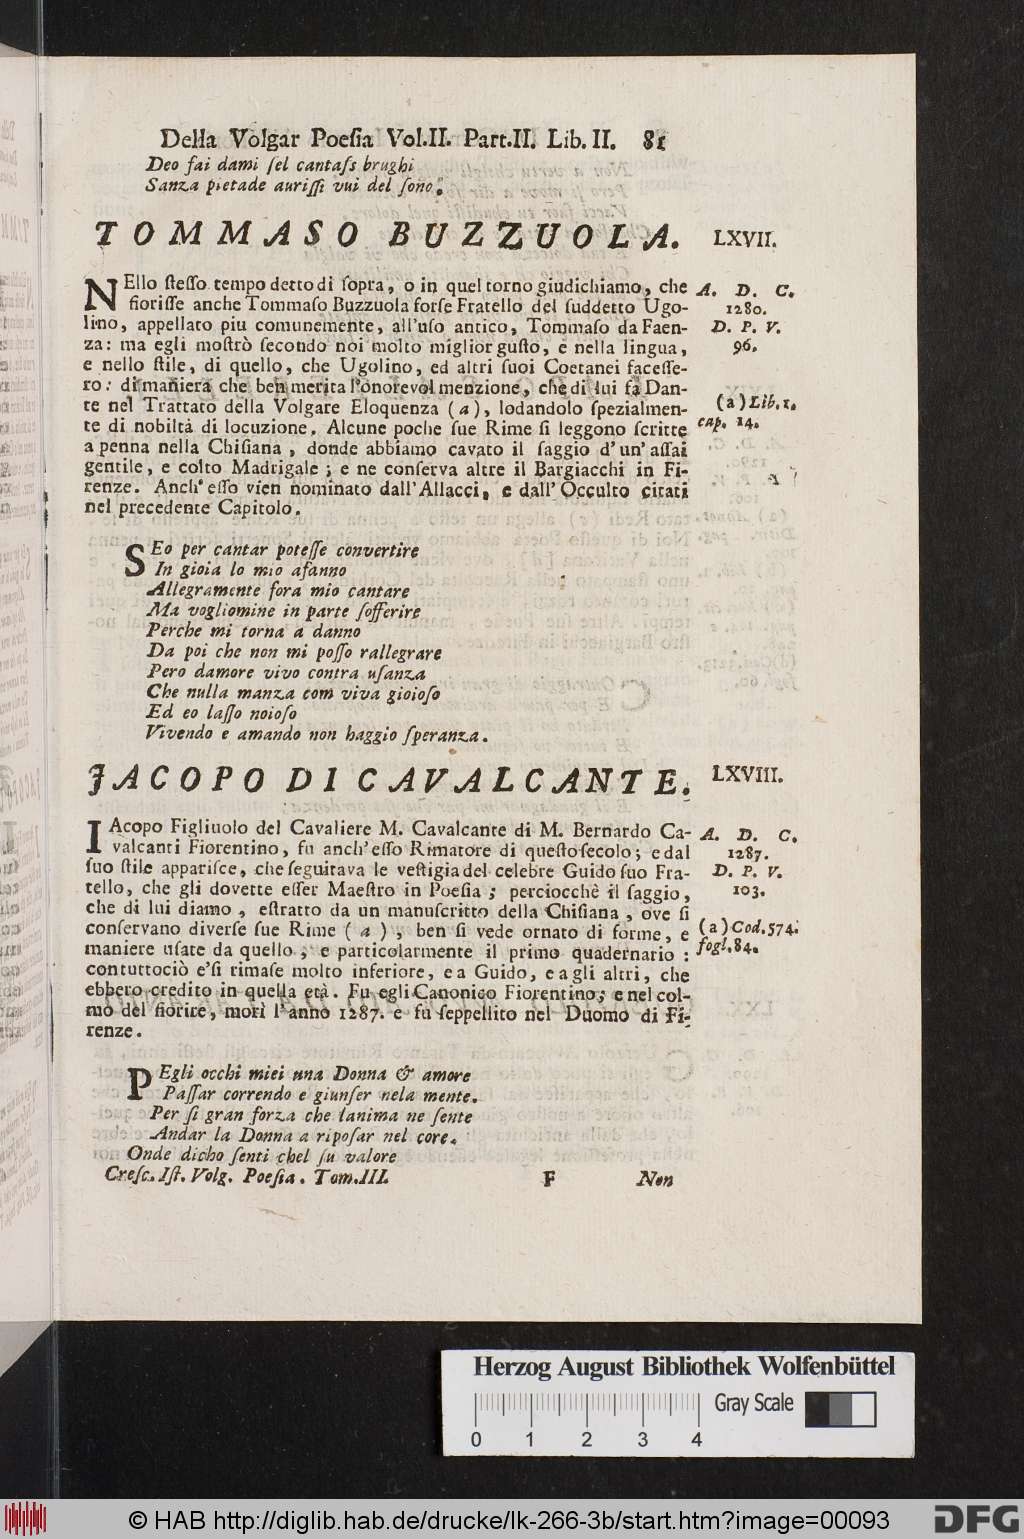 Della Volgar Poesia Vol.II. Part.II. Lib. II. 81
Deo fai dami sel cantass brughi
Sanza pietade aurissi vui del sono.
TOMMASO BUZZUOLA. LXVII.
NEllo stesso tempo detto di sopra, o in quel torno giudichiamo, che
fiorisse anche Tommaso Buzzuola forse Fratello del suddetto Ugo-
lino, appellato piu comunemente, all'uso antico, Tommaso da Faen-
za: ma egli mostrò secondo noi molto miglior gusto, e nella lingua,
e nello stile, di quello, che Ugolino, ed altri suoi Coetanei facesse-
ro: di maniera che ben merita l'onorevol menzione, che di lui fa Dan-
te nel Trattato della Volgare Eloquenza (a), lodandolo spezialmen-
te di nobiltà di locuzione. Alcune poche sue Rime si leggono scritte
a penna nella Chisiana, donde abbiamo cavato il saggio d'un'assai
gentile, e colto Madrigale; e ne conserva altre il Bargiacchi in Fi-
renze. Anch'esso vien nominato dall'Allacci, e dall'Occulto citati
nel precedente Capitolo.
A. D. C.
1280.
D. P. V.
96.
(a) Lib. 1.
cap. 14.
SEo per cantar potesse convertire
In gioia lo mio afanno
Allegramente fora mio cantare
Ma vogliomine in parte sofferire
Perche mi torna a danno
Da poi che non mi posso rallegrare
Pero damore vivo contra usanza
Che nulla manza com viva gioioso
Ed eo lasso noioso
Vivendo e amando non haggio speranza.
JACOPO DI CAVALCANTE. LXVIII.
IAcopo Figliuolo del Cavaliere M. Cavalcante di M. Bernardo Ca-
valcanti Fiorentino, fu anch'esso Rimatore di questo secolo; e dal
suo stile apparisce, che seguitava le vestigia del celebre Guido suo Fra-
tello, che gli dovette esser Maestro in Poesia; perciocchè il saggio,
che di lui diamo, estratto da un manuscritto della Chisiana, ove si
conservano diverse sue Rime (a), ben si vede ornato di forme, e
maniere usate da quello; e particolarmente il primo quadernario:
contuttociò e'si rimase molto inferiore, e a Guido, e agli altri, che
ebbero credito in quella età. Fu egli Canonico Fiorentino; e nel col-
mo del fiorire, morì l'anno 1287. e fu seppellito nel Duomo di Fi-
renze.
A. D. C.
1287.
D. P. V.
103.
(a) Cod. 574.
fogl. 84.
PEgli occhi miei una Donna & amore
Passar correndo e giunser nela mente.
Per si gran forza che lanima ne sente
Andar la Donna a riposar nel core.
Onde dicho senti chel su valore
Cresc. Ist. Volg. Poesia. Tom.III. F Non
Herzog August Bibliothek Wolfenbüttel
Gray Scale
0 1 2 3 4
© HAB http://diglib.hab.de/drucke/lk-266-3b/start.htm?image=00093
DFG